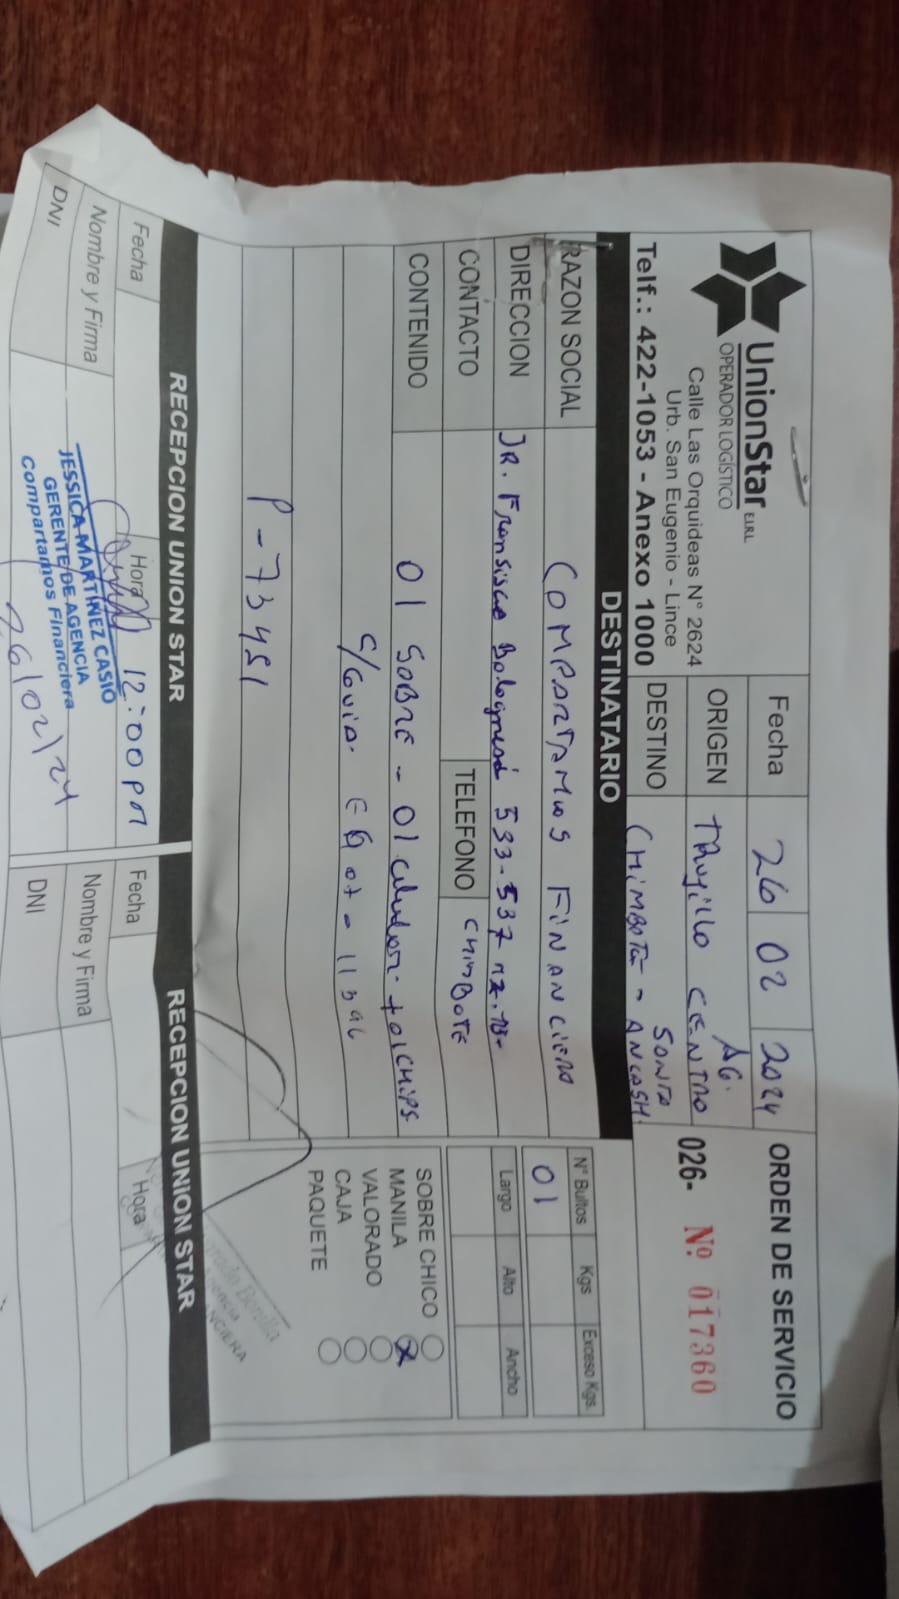 UnionStar E.I.R.L
OPERADOR LOGÍSTICO
Calle Las Orquideas N° 2624
Urb. San Eugenio - Lince
Telf.: 422-1053 - Anexo 1000
Fecha 26 02 2024
ORIGEN Trujillo CENTRO AG.
DESTINO CHIMBOTE - SANTA ANCASH.
ORDEN DE SERVICIO
026- Nº 017360
DESTINATARIO
RAZON SOCIAL COMPARTAMOS FINANCIERA
DIRECCION JR. Fransisco Bolognesi 533-537
CONTACTO TELEFONO CHIMBOTE
CONTENIDO 01 SOBRE - 01 celular + 01 CHIPS
S/Guia.
P-73451
N° Bultos Kgs Exceso Kgs.
01
Largo Alto Ancho
SOBRE CHICO
MANILA X
VALORADO
CAJA
PAQUETE
RECEPCION UNION STAR
Fecha Hora 12:00 pm
Nombre y Firma
DNI
JESSICA MARTINEZ CASIO
GERENTE DE AGENCIA
Compartamos Financiera
26/02/24
RECEPCION UNION STAR
Fecha Hora
Nombre y Firma
DNI